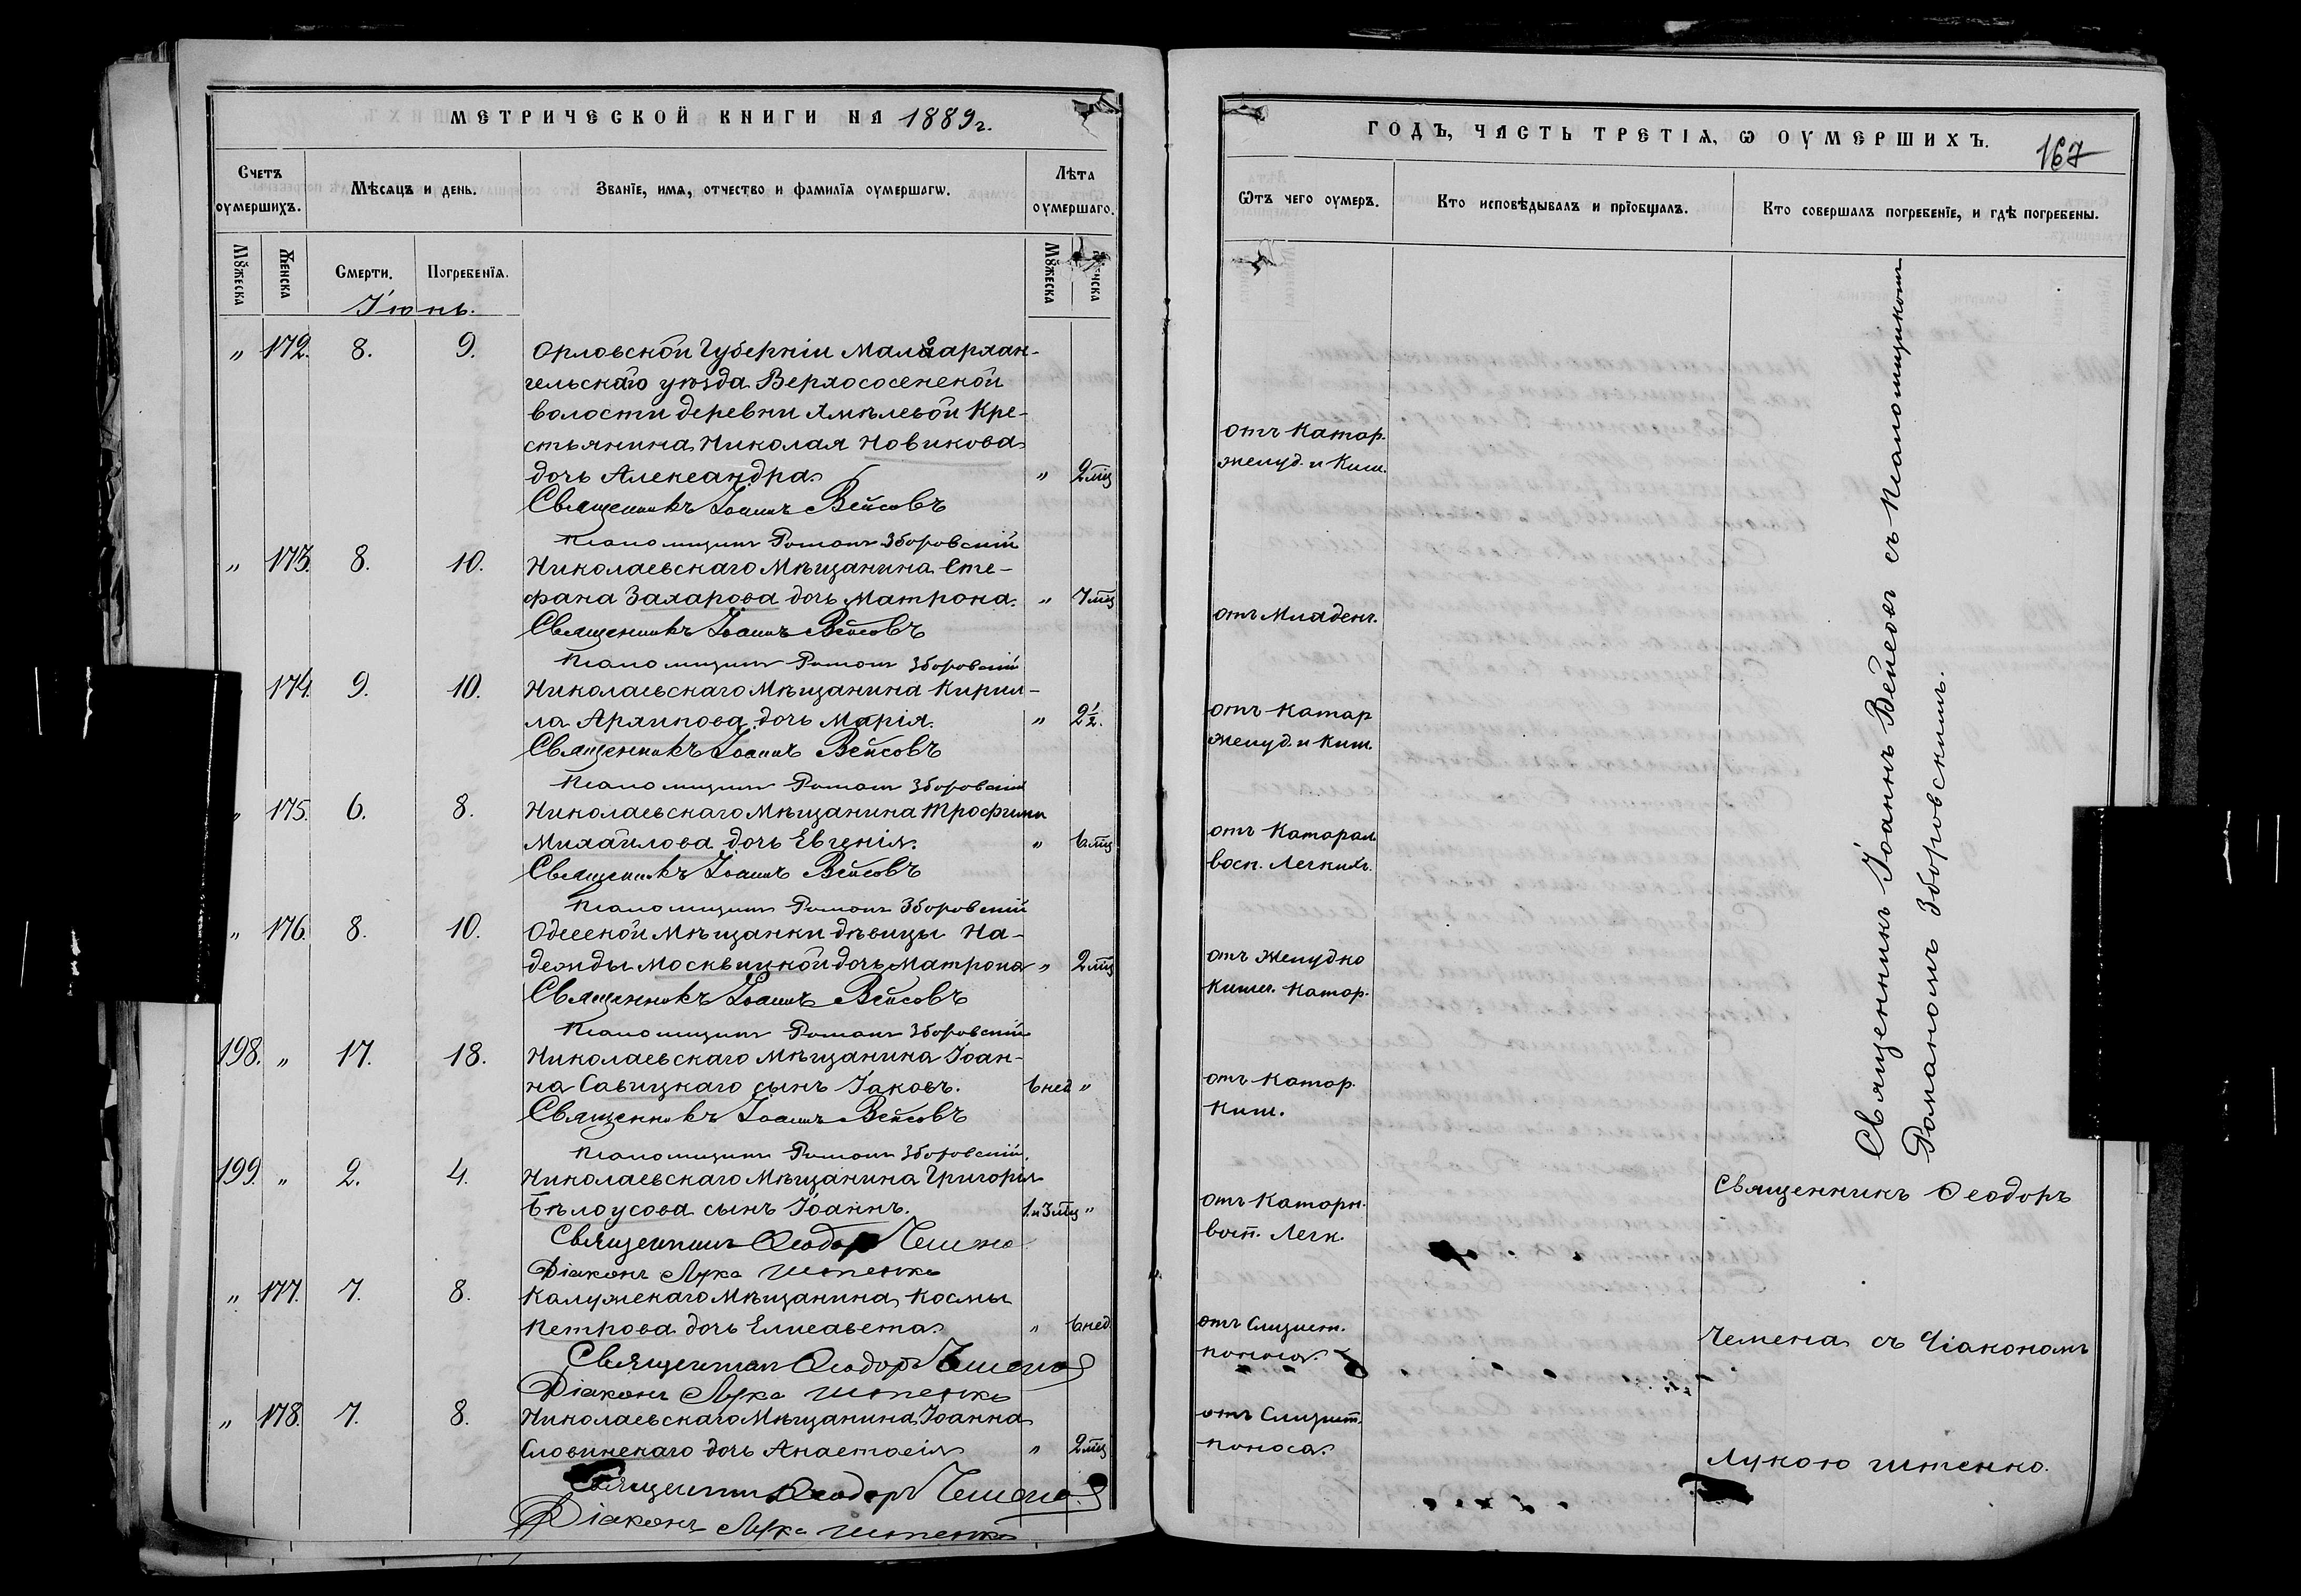 МЕТРИЧЕСКОЙ КНИГИ НА 1889 г.
Счетъ оумершихъ.
Мѣсяцъ и день.
Званїе, имѧ, отчество и фамилїѧ оумершагѡ.
Лѣта оумершаго.
Мꙋжеска
Женска
Смерти.
Погребенїѧ.
Мꙋжеска
Іюнь.
" 172. 8. 9. Орловской Губерніи Малоархан-
гельскаго уѣзда Верхососенской
волости деревни Хмѣлевой Кре-
стьянина Николая Новикова
дочь Александра " 2 мц
Священникъ Іоаннъ Вейсовъ
Псаломщикъ Романъ Зборовскій
" 173. 8. 10. Николаевскаго Мѣщанина Сте-
фана Захарова дочь Матрона. " 7 мц
Священникъ Іоаннъ Вейсовъ
Псаломщикъ Романъ Зборовскій
174. 9. 10. Николаевскаго Мѣщанина Кирил-
ла Архипова дочь Марія. " 2½.
Священникъ Іоаннъ Вейсовъ
Псаломщикъ Романъ Зборовскій
" 175. 6. 8. Николаевскаго Мѣщанина Трофима
Михайлова дочь Евгенія. " 6 мц
Священникъ Іоаннъ Вейсовъ
Псаломщикъ Романъ Зборовскій
" 176. 8. 10. Одесской Мѣщанки дѣвицы На-
дежды Москвицкой дочь Матрона " 2 мц
Священникъ Іоаннъ Вейсовъ
Псаломщикъ Романъ Зборовскій
198. " 17. 18. Николаевскаго Мѣщанина Іоан-
на Савицкаго сынъ Іаковъ. 6 нед "
Священникъ Іоаннъ Вейсовъ
Псаломщикъ Романъ Зборовскій.
199. " 2. 4. Николаевскаго Мѣщанина Григорія
Бѣлоусова сынъ Іоаннъ. 1 и 3 мц "
Священникъ Ѳеодоръ Чемена
Діаконъ Лука Штенко
" 177. 7. 8. Калужскаго Мѣщанина Космы
Петрова дочь Елисавета. " 6 нед
Священникъ Ѳеодоръ Чемена
Діаконъ Лука Штенко
" 178. 7. 8. Николаевскаго Мѣщанина Іоанна
Словинскаго дочь Анастасія " 2 мц
Священникъ Ѳеодоръ Чемена
Діаконъ Лука Штенко
ГОДЪ, ЧАСТЬ ТРЕТІѦ, Ѡ ОУМЕРШИХЪ.
167
Ѿтъ чего оумеръ.
Кто исповѣдывалъ и прїобщалъ.
Кто совершалъ погребенїе, и гдѣ погребены.
отъ Катар.
желуд. и Киш.
отъ Младенч.
отъ Катар
желуд. и Киш.
отъ Катарал.
восп. Легкихъ.
отъ Желудко
Кишеч. Катар.
отъ Катар.
Киш.
отъ Катарн.
восп. Легк.
отъ Слизист.
поноса.
отъ Слизист.
поноса.
Священникъ Іоаннъ Вейсовъ съ Псаломщикомъ
Романомъ Зборовскимъ.
Священникъ Ѳеодоръ
Чемена съ Діакономъ
Лукою Штенко.